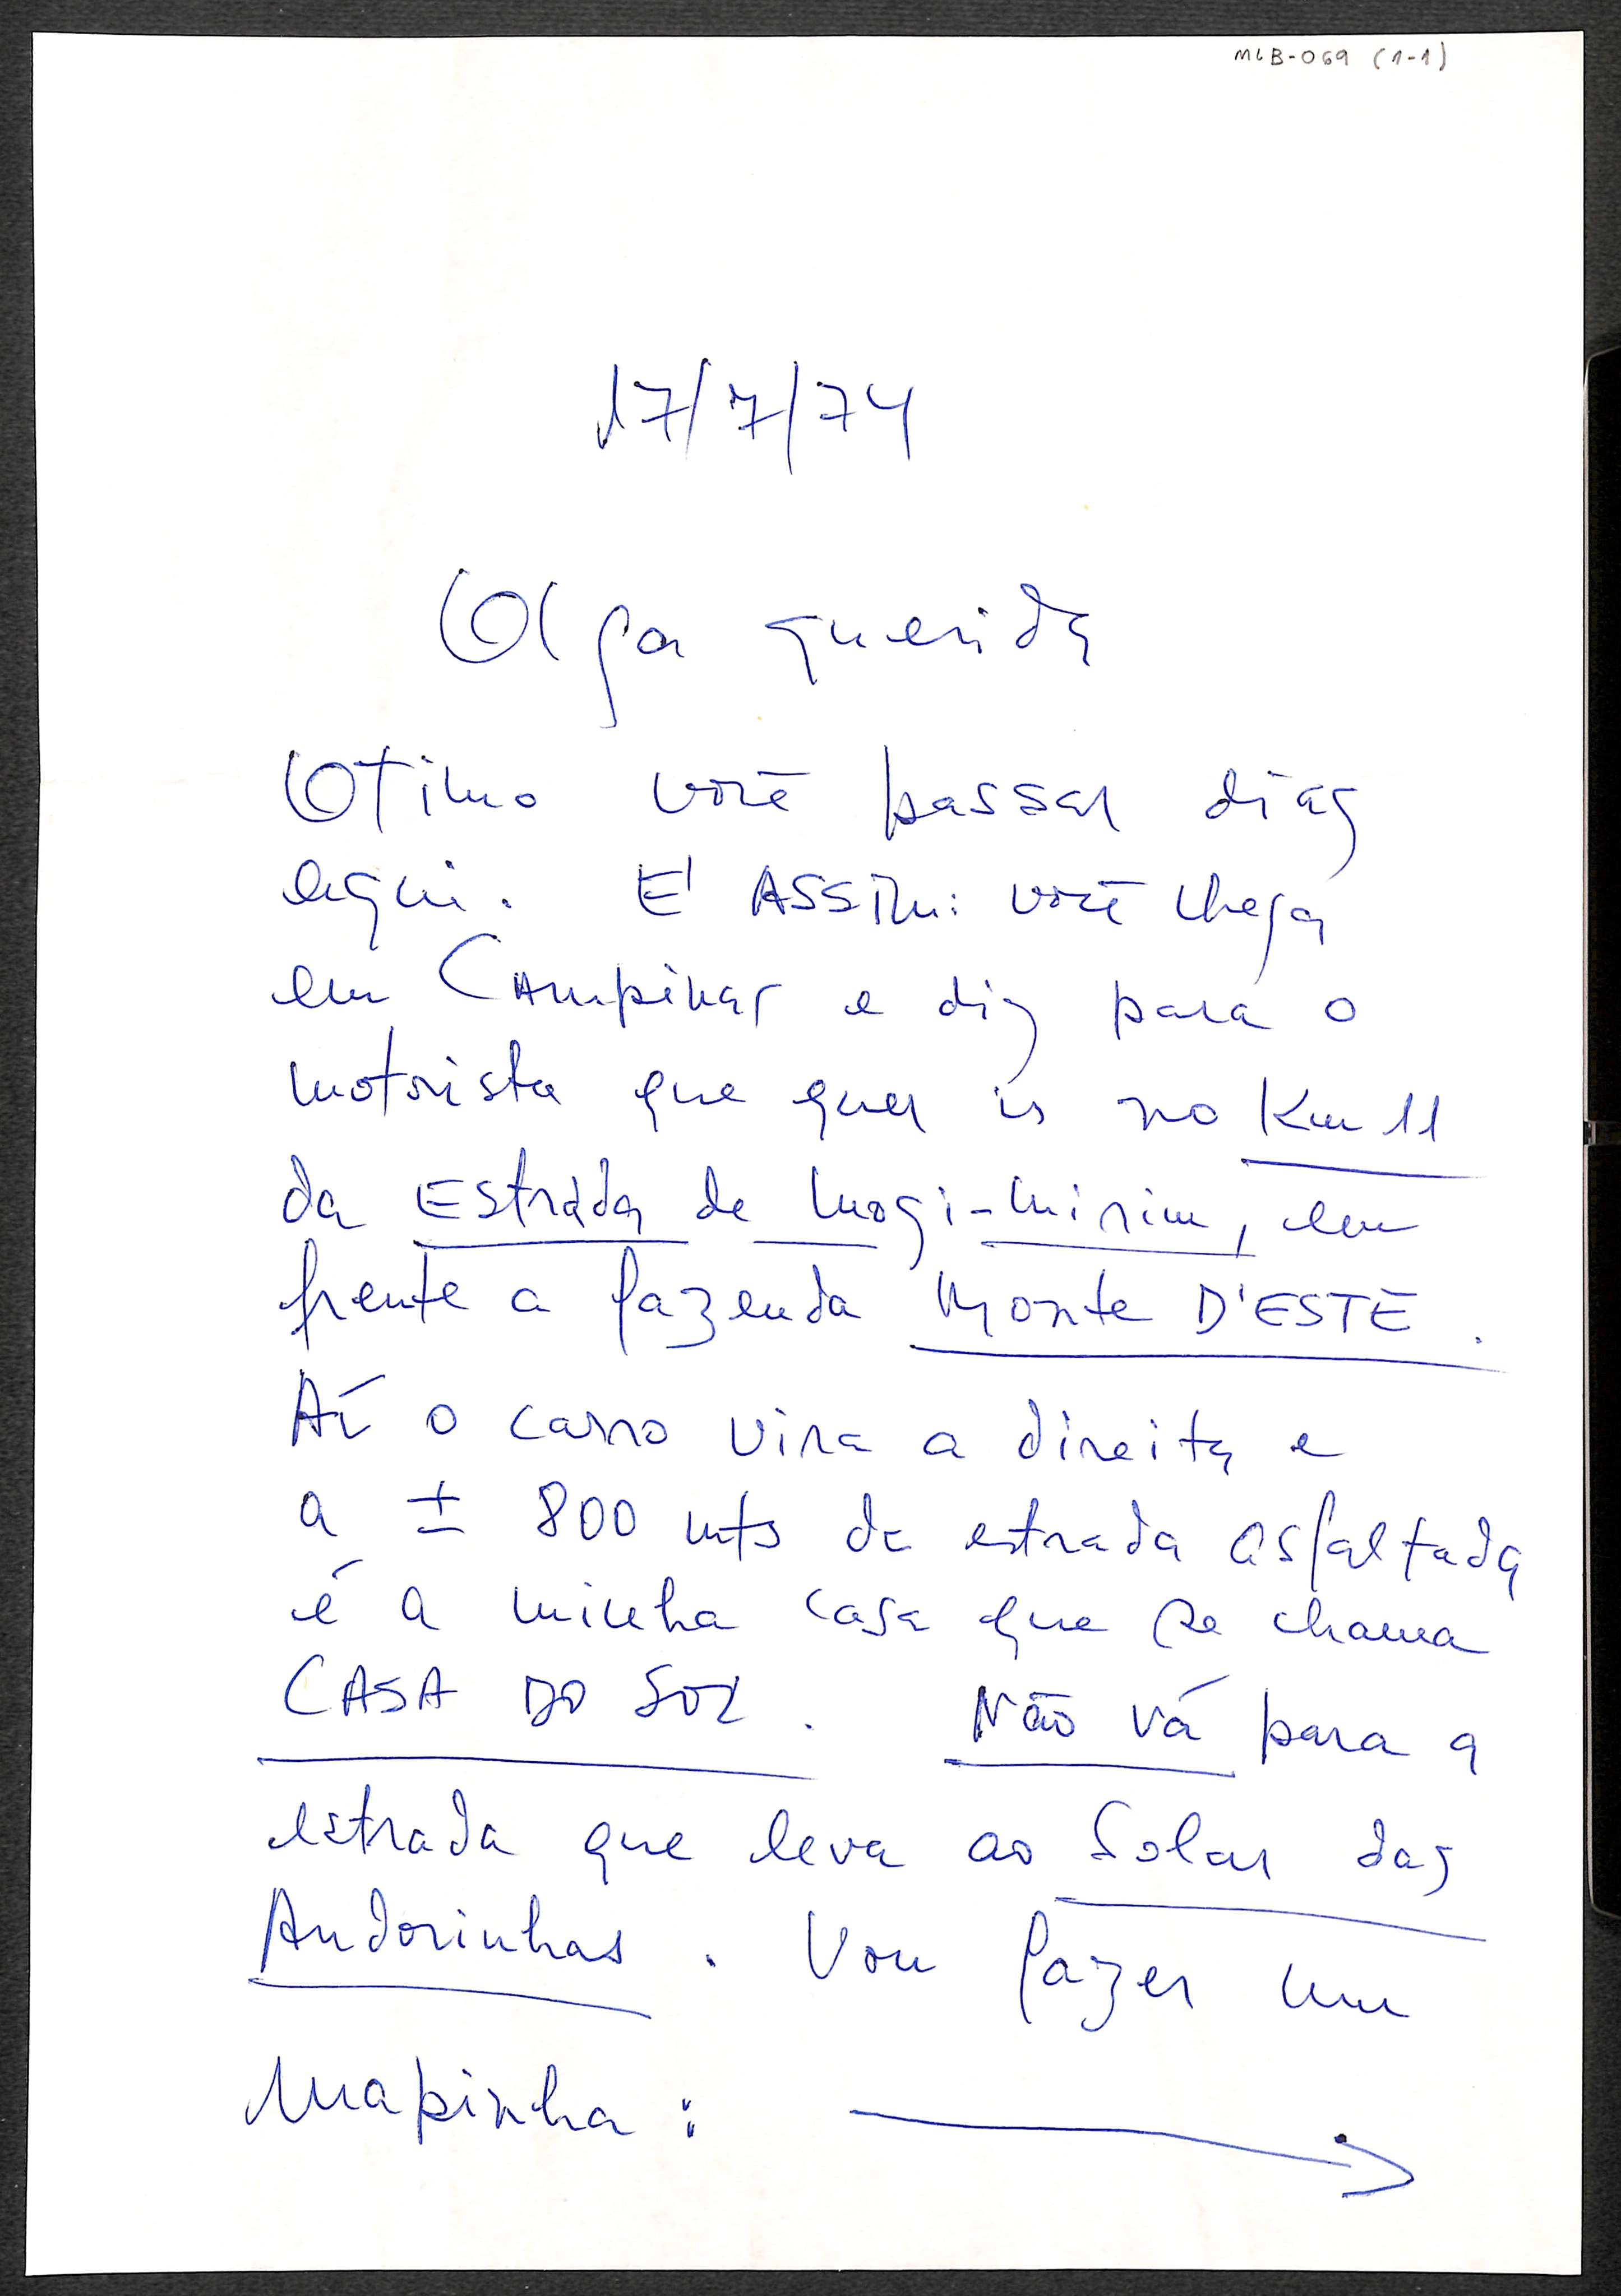 MLB-069 (1-1)
17/7/74
Olga querida
Otimo você passar dias
aqui. E' ASSIM: você chega
em Campinas e diz para o
motorista que quer ir no Km 11
da Estrada de Mogi-Mirim, em
frente a fazenda Monte D'ESTE.
Aí o carro vira a direita e
a ± 800 mts da estrada asfaltada
é a minha casa que se chama
CASA DO SOL. Não vá para a
estrada que leva ao Solar das
Andorinhas. Vou fazer um
mapinha: →